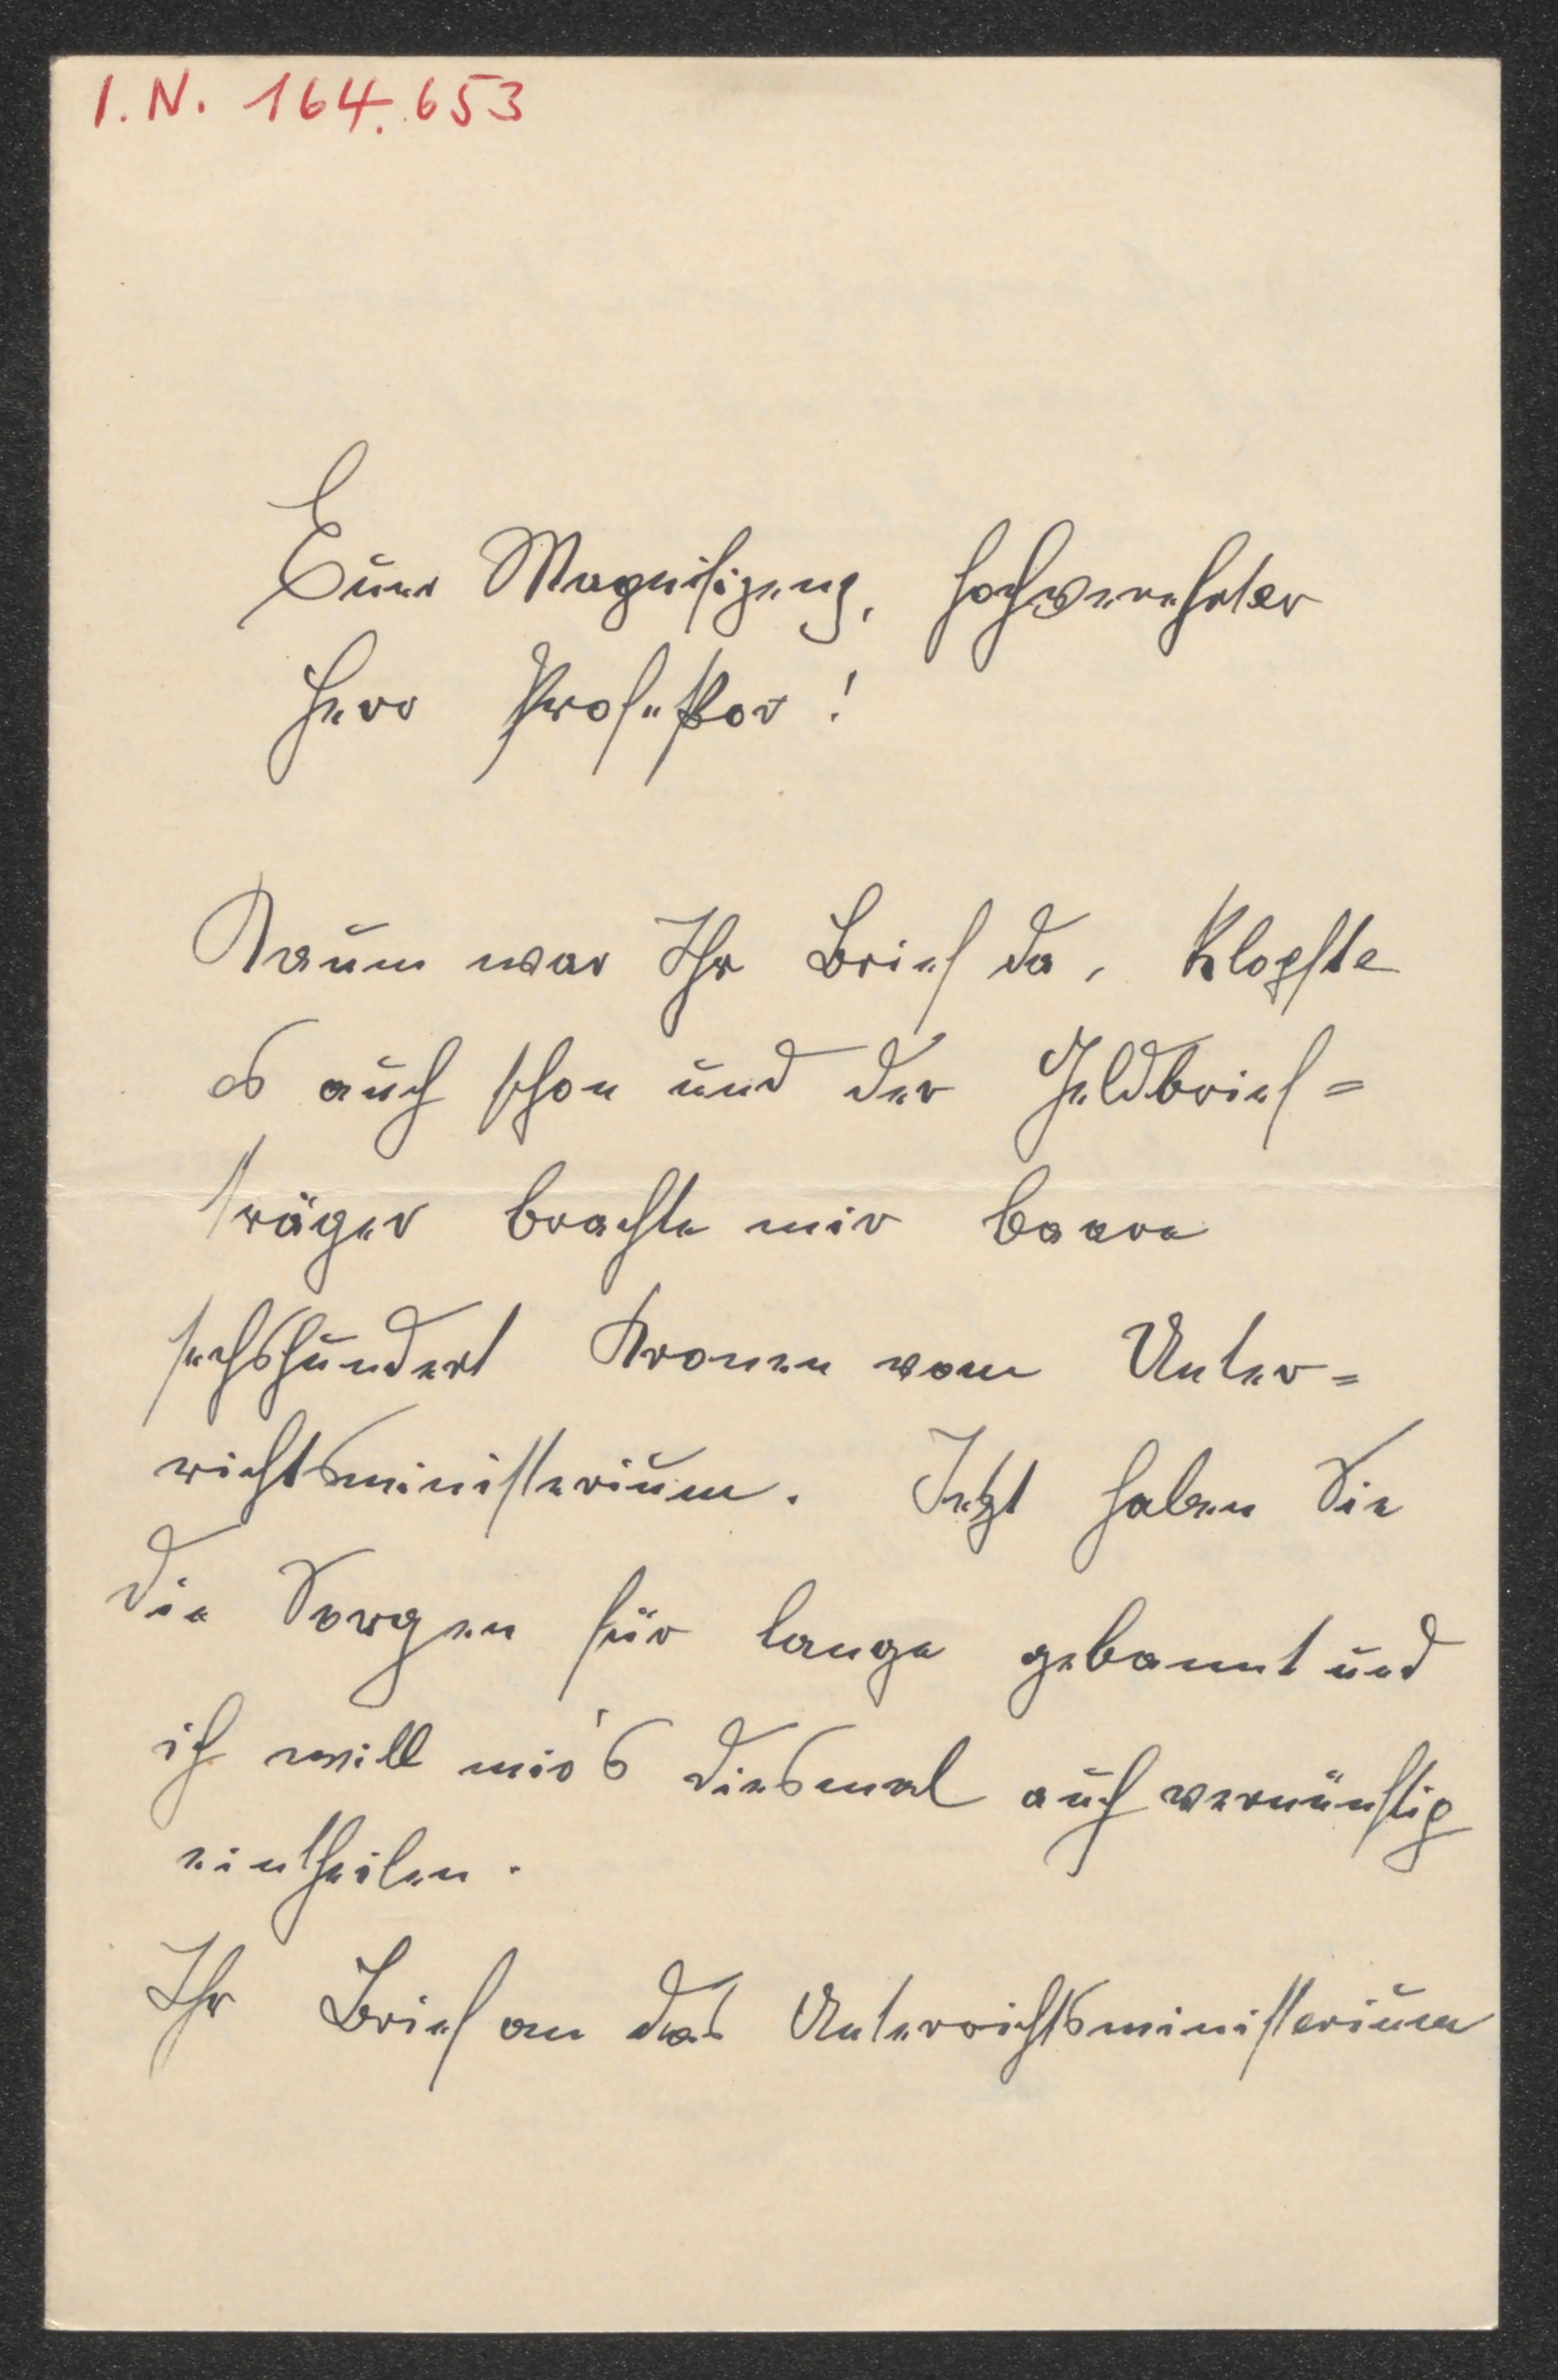 I.N. 164.653
Euer Magnifizenz, hochverehrter
Herr Professor!
Kaum war Ihr Brief da, klopfte
es auch schon und der Geldbrief=
träger brachte mir baare
sechshundert Kronen vom Unter=
richtsministerium. Jetzt haben Sie
die Sorgen für lange gebannt und
ich will mir's diesmal auch vernünftig
eintheilen.
Ihr Brief an das Unterrichtsministerium